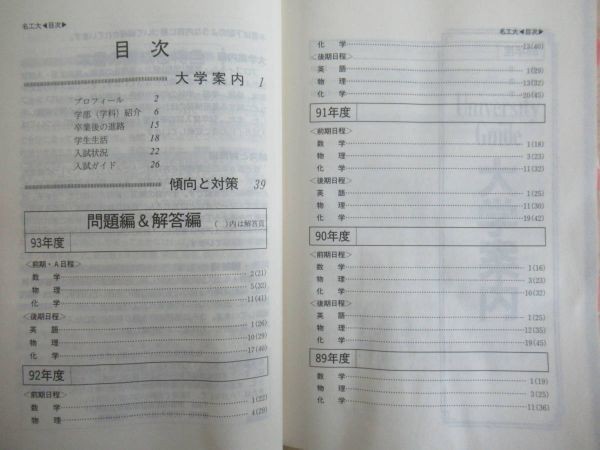 名工大◀目次▶
目次
大学案内 1
プロフィール 2
学部（学科）紹介 6
卒業後の進路 15
学生生活 18
入試状況 22
入試ガイド 26
傾向と対策 39
問題編＆解答編 （ ）内は解答頁
93年度
〈前期・A日程〉
数学 2(21)
物理 5(32)
化学 11(41)
〈後期日程〉
英語 1(26)
物理 10(29)
化学 17(46)
92年度
〈前期日程〉
数学 1(22)
物理 4(29)
名工大◀目次▶
化学 13(40)
〈後期日程〉
英語 1(29)
物理 13(32)
化学 20(45)
91年度
〈前期日程〉
数学 1(18)
物理 3(23)
化学 11(32)
〈後期日程〉
英語 1(25)
物理 11(30)
化学 19(42)
90年度
〈前期日程〉
数学 1(16)
物理 3(23)
化学 10(32)
〈後期日程〉
英語 1(25)
物理 12(35)
化学 19(45)
89年度
数学 1(19)
物理 3(25)
化学 11(36)
University
Guide
大学案内